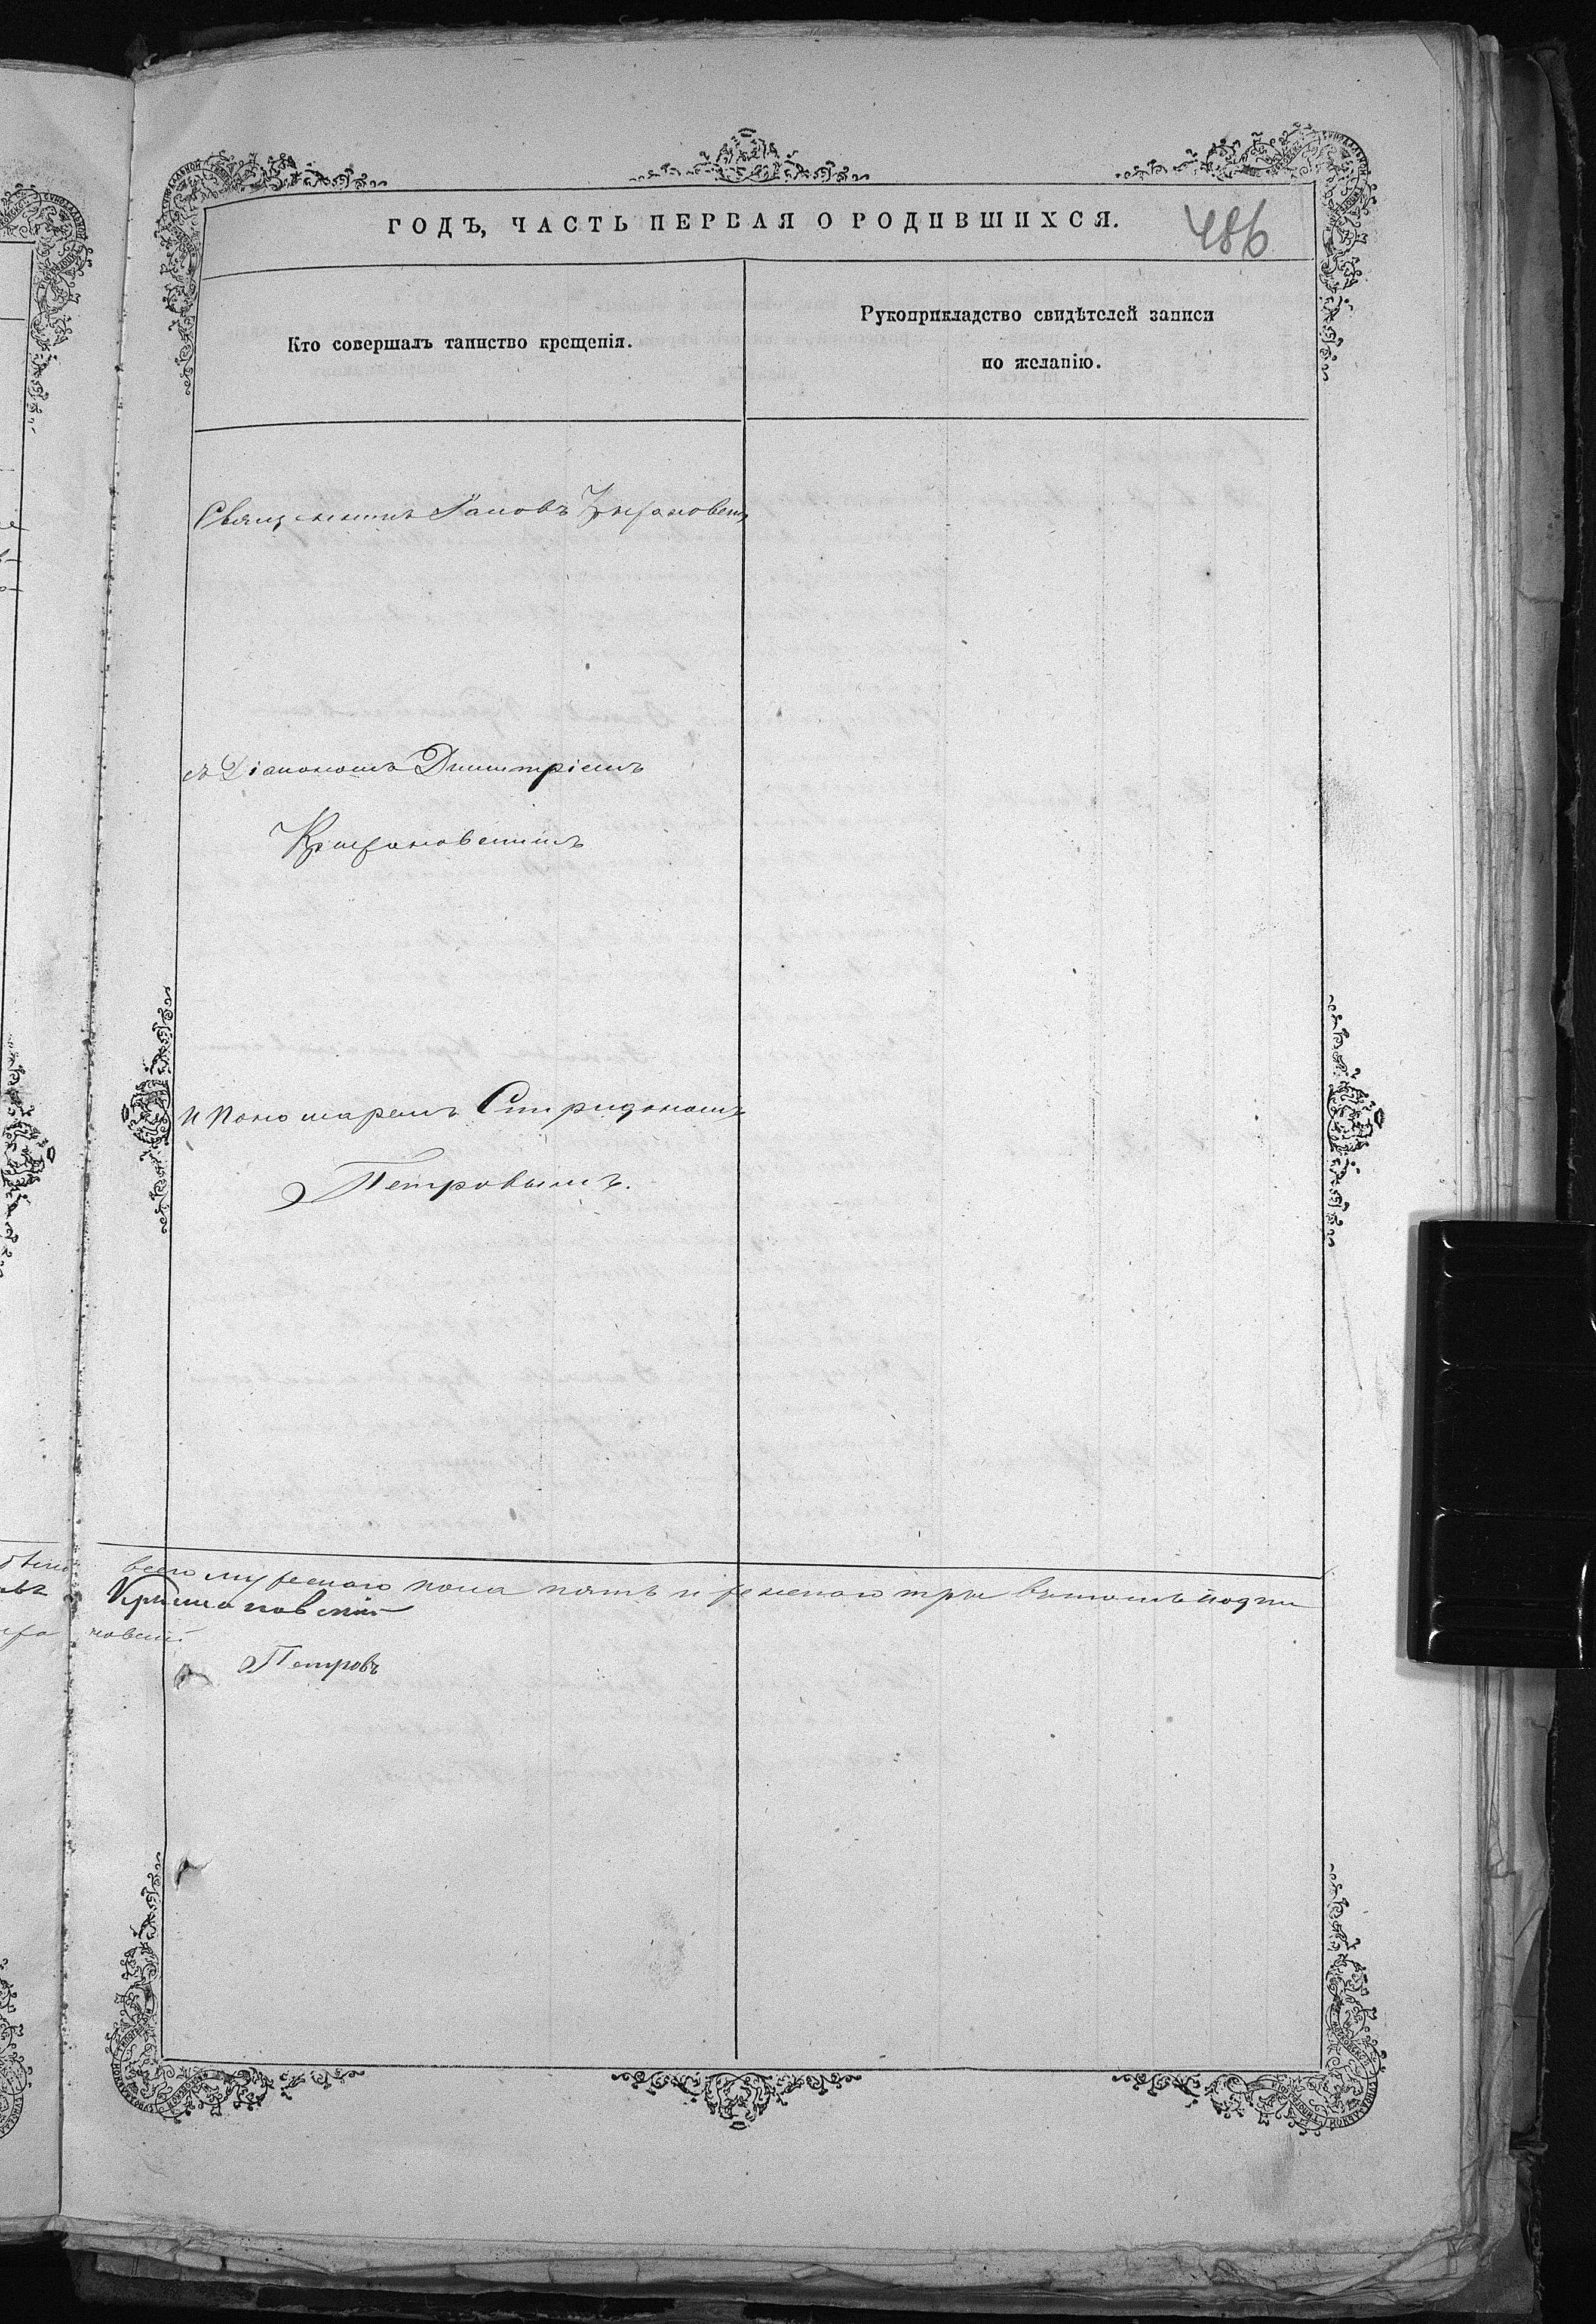 ГОДЪ, ЧАСТЬ ПЕРВАЯ О РОДИВШИХСЯ.
486
Кто совершалъ таинство крещенія.
Рукоприкладство свидѣтелей записи
по желанію.
Священникъ Іаковъ
съ Діакономъ Димитріемъ
Крыжановскимъ
и Пономаремъ Спиридономъ
Петровымъ.
всего мужескаго пола пять и женскаго три въ томъ подпи
новскій
Петровъ